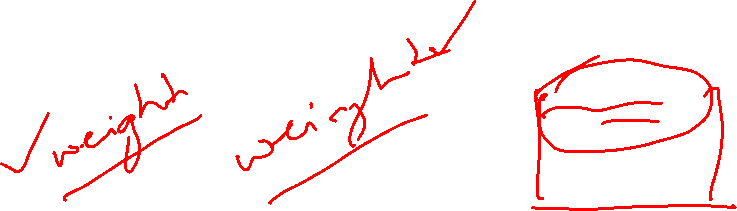 weight weight